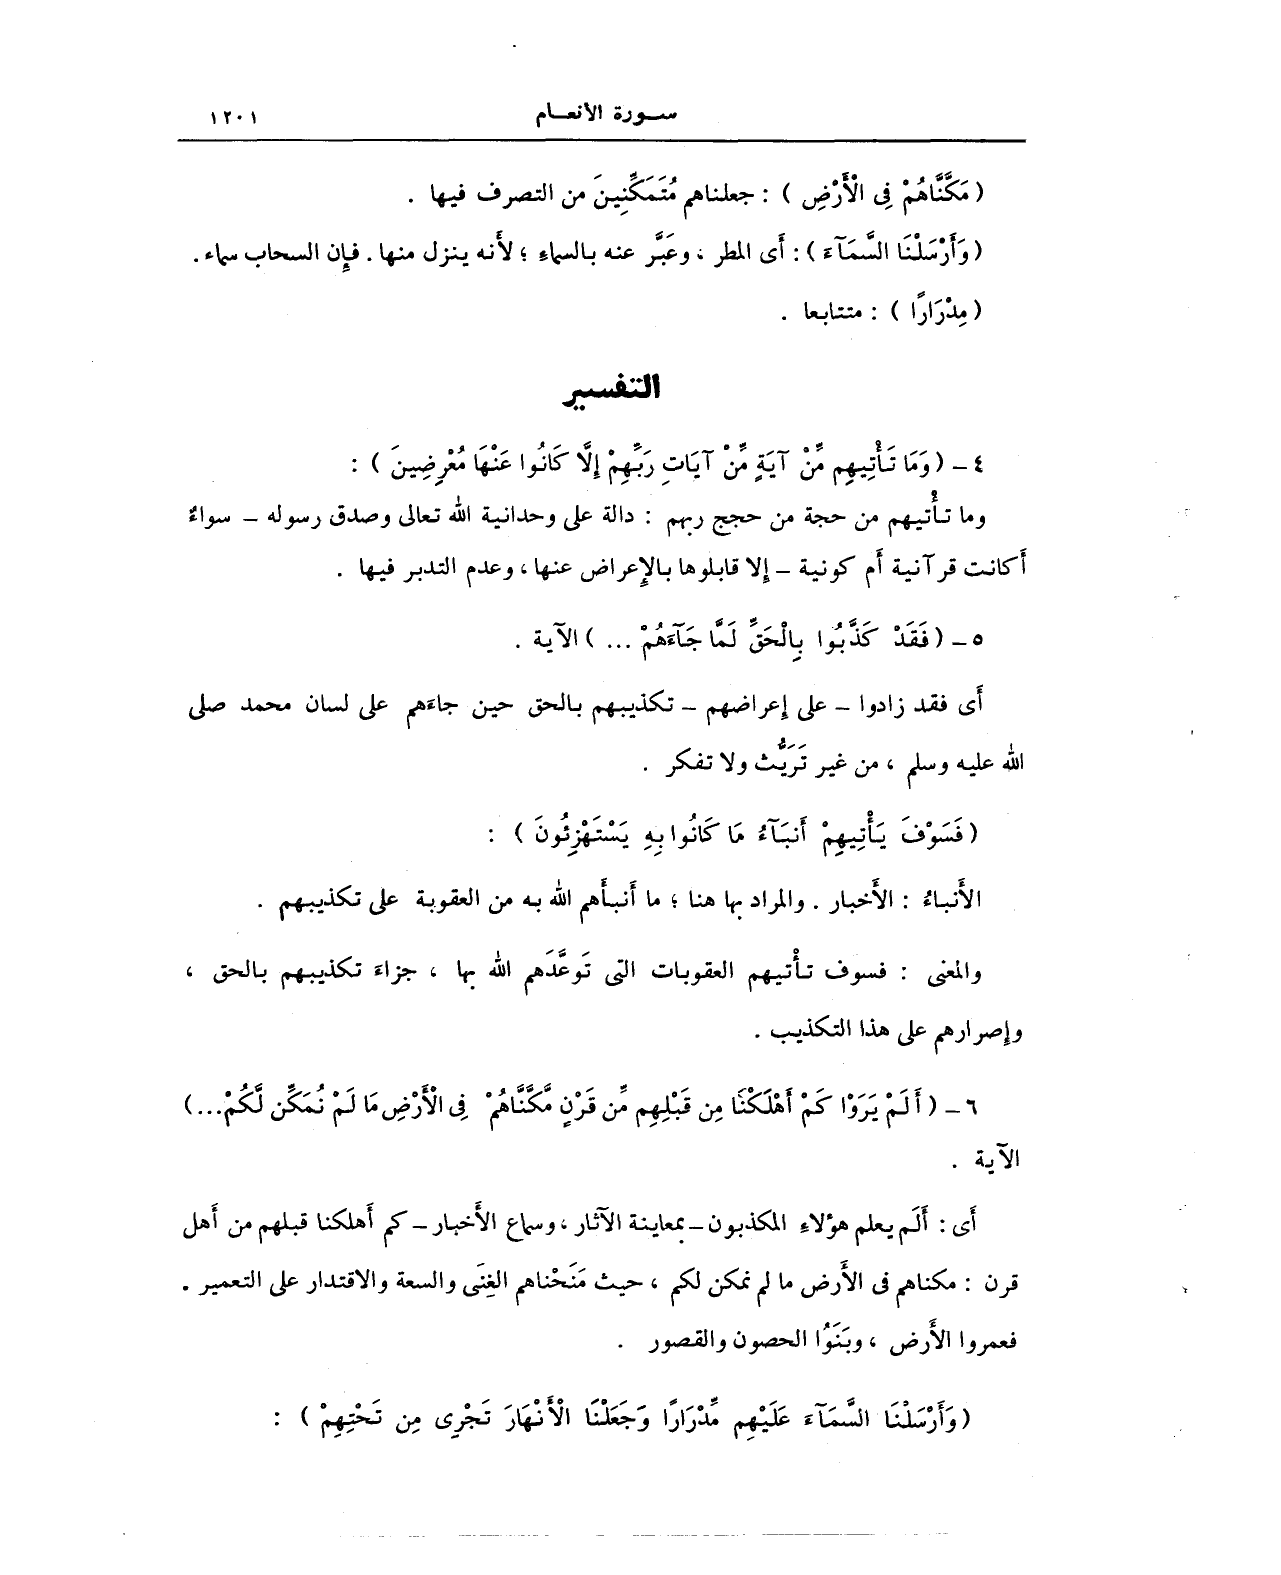 سورة الأنعام ١٢٠١
(مَكَّنَّاهُمْ فِى الْأَرْضِ) : جعلناهم مُتَمَكِّنِينَ من التصرف فيها .
(وَأَرْسَلْنَا السَّمَآءَ) : أى المطر ، وعَبَّر عنه بالسماءِ ؛ لأَنه ينزل منها . فإن السحاب سماء .
(مِدْرَارًا) : متتابعا .
التفسير
٤ – (وَمَا تَأْتِيهِم مِّنْ آيَةٍ مِّنْ آيَاتِ رَبِّهِمْ إِلَّا كَانُوا عَنْهَا مُعْرِضِينَ) :
وما تأْتيهم من حجة من حجج ربهم : دالة على وحدانية الله تعالى وصدق رسوله – سواءٌ
أَكانت قرآنية أَم كونية – إلا قابلوها بالإِعراض عنها ، وعدم التدبر فيها .
٥ – (فَقَدْ كَذَّبُوا بِالْحَقِّ لَمَّا جَآءَهُمْ ...) الآية .
أَى فقد زادوا – على إعراضهم – تكذيبهم بالحق حين جاءَهم على لسان محمد صلى
الله عليه وسلم ، من غير تَرَيُّث ولا تفكر .
(فَسَوْفَ يَأْتِيهِمْ أَنبَآءُ مَا كَانُوا بِهِ يَسْتَهْزِئُونَ) :
الأَنباءُ : الأَخبار . والمراد بها هنا ؛ ما أَنبأَهم الله به من العقوبة على تكذيبهم .
والمعنى : فسوف تأْتيهم العقوبات التى تَوعَّدَهم الله بها ، جزاءَ تكذيبهم بالحق ،
وإصرارهم على هذا التكذيب .
٦ – (أَلَمْ يَرَوْا كَمْ أَهْلَكْنَا مِن قَبْلِهِم مِّن قَرْنٍ مَّكَّنَّاهُمْ فِى الْأَرْضِ مَا لَمْ نُمَكِّن لَّكُمْ...)
الآية .
أَى : أَلَم يعلم هؤلاءِ المكذبون – بمعاينة الآثار ، وسماع الأَخبار – كم أَهلكنا قبلهم من أَهل
قرن : مكناهم فى الأَرض ما لم نمكن لكم ، حيث مَنَحْناهم الغِنَى والسعة والاقتدار على التعمير .
فعمروا الأَرض ، وبَنَوُا الحصون والقصور .
(وَأَرْسَلْنَا السَّمَآءَ عَلَيْهِم مِّدْرَارًا وَجَعَلْنَا الْأَنْهَارَ تَجْرِى مِن تَحْتِهِمْ) :